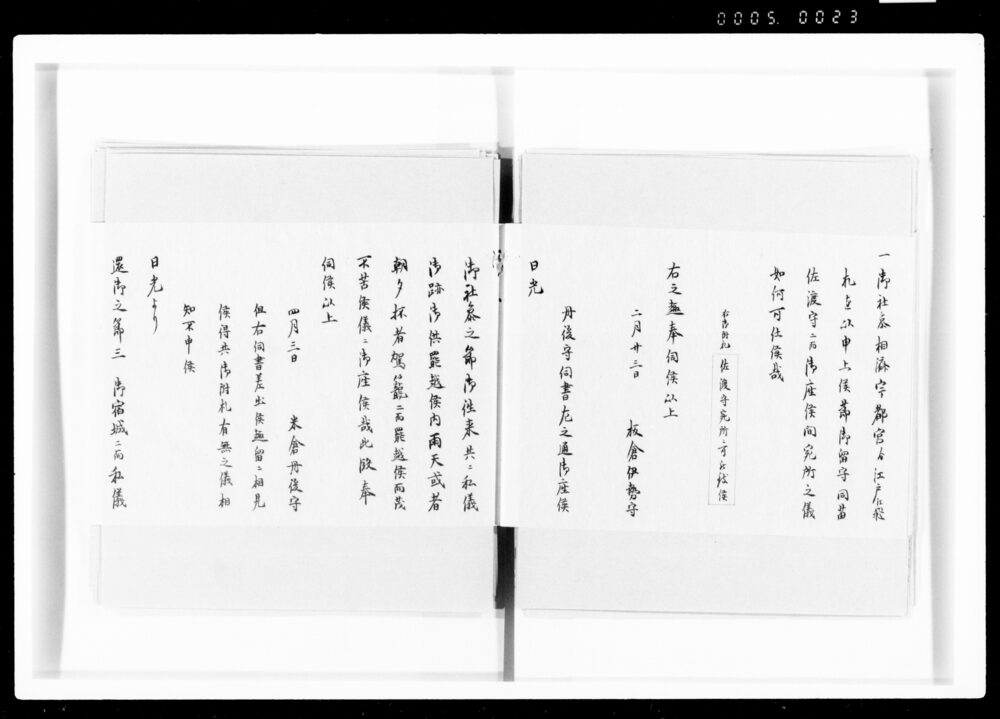 0005. 0023
一御社参相済宇都宮ゟ江戸江飛
札を以申上候節御留守同苗
佐渡守ニ而御座候間宛所之儀
如何可仕候哉
右御附札
佐渡守宛所ニ可被致候
右之趣奉伺候以上
二月廿三日 板倉伊勢守
丹後守伺書左之通御座候
日光
御社参之節御往来共ニ私儀
御跡御供罷越候内雨天或者
朝夕抔者駕籠ニ而罷越候而茂
不苦候儀ニ御座候哉此段奉
伺候以上
四月三日 米倉丹後守
但右伺書差出候趣留ニ相見
候得共御附札有無之儀相
知不申候
日光より
還御之節三御宿城ニ而私儀